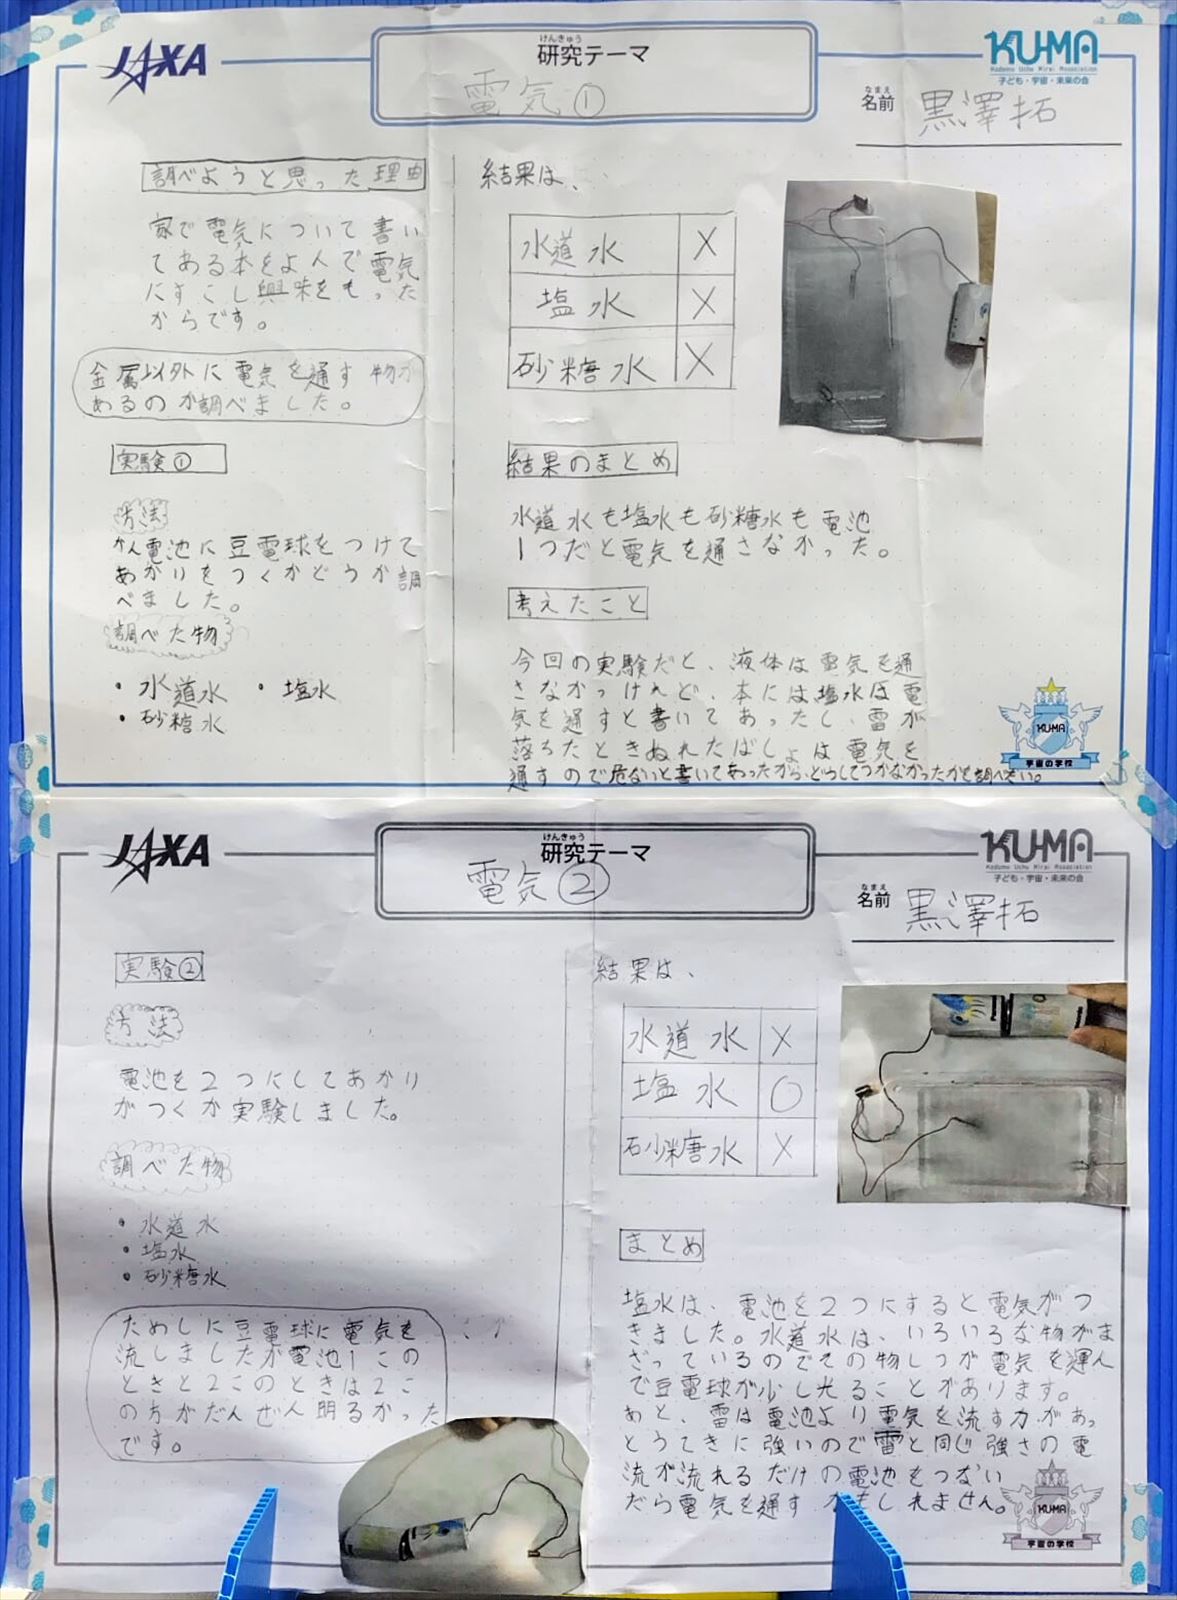 JAXA
けんきゅう
研究テーマ
電気①
KU-MA
Kodomo Uchu Mirai Association
子ども・宇宙・未来の会
なまえ
名前
黒澤拓
調べようと思った理由
家で電気について書い
てある本をよんで電気
にすこし興味をもった
からです。
金属以外に電気を通す物が
あるのか調べました。
実験①
方法
かん電池に豆電球をつけて
あかりをつくかどうか調
べました。
調べた物
・水道水 ・塩水
・砂糖水
結果は、
水道水 X
塩水 X
砂糖水 X
結果のまとめ
水道水も塩水も砂糖水も電池
1つだと電気を通さなかった。
考えたこと
今回の実験だと、液体は電気を通
さなかっけれど、本には塩水は電
気を通すと書いてあったし、雷が
落ちたときぬれたばしょは電気を
通すので危ないと書いてあったから、どうしてつかなかったかを調べたい。
KU-MA
宇宙の学校
JAXA
けんきゅう
研究テーマ
電気②
KU-MA
Kodomo Uchu Mirai Association
子ども・宇宙・未来の会
なまえ
名前
黒澤拓
実験②
方法
電池を2つにしてあかり
がつくか実験しました。
調べた物
・水道水
・塩水
・砂糖水
ためしに豆電球に電気を
流しましたが電池1この
ときと2このときは2こ
の方がだんぜん明るかった
です。
結果は、
水道水 X
塩水 O
砂糖水 X
まとめ
塩水は、電池を2つにすると電気がつ
きました。水道水は、いろいろな物がま
ざっているのでその物しつが電気を運ん
で豆電球が少し光ることがあります。
あと、雷は電池より電気を流す力があっ
とうてきに強いので雷と同じ強さの電
流が流れるだけの電池をつない
だら電気を通すかもしれません。
KU-MA
宇宙の学校